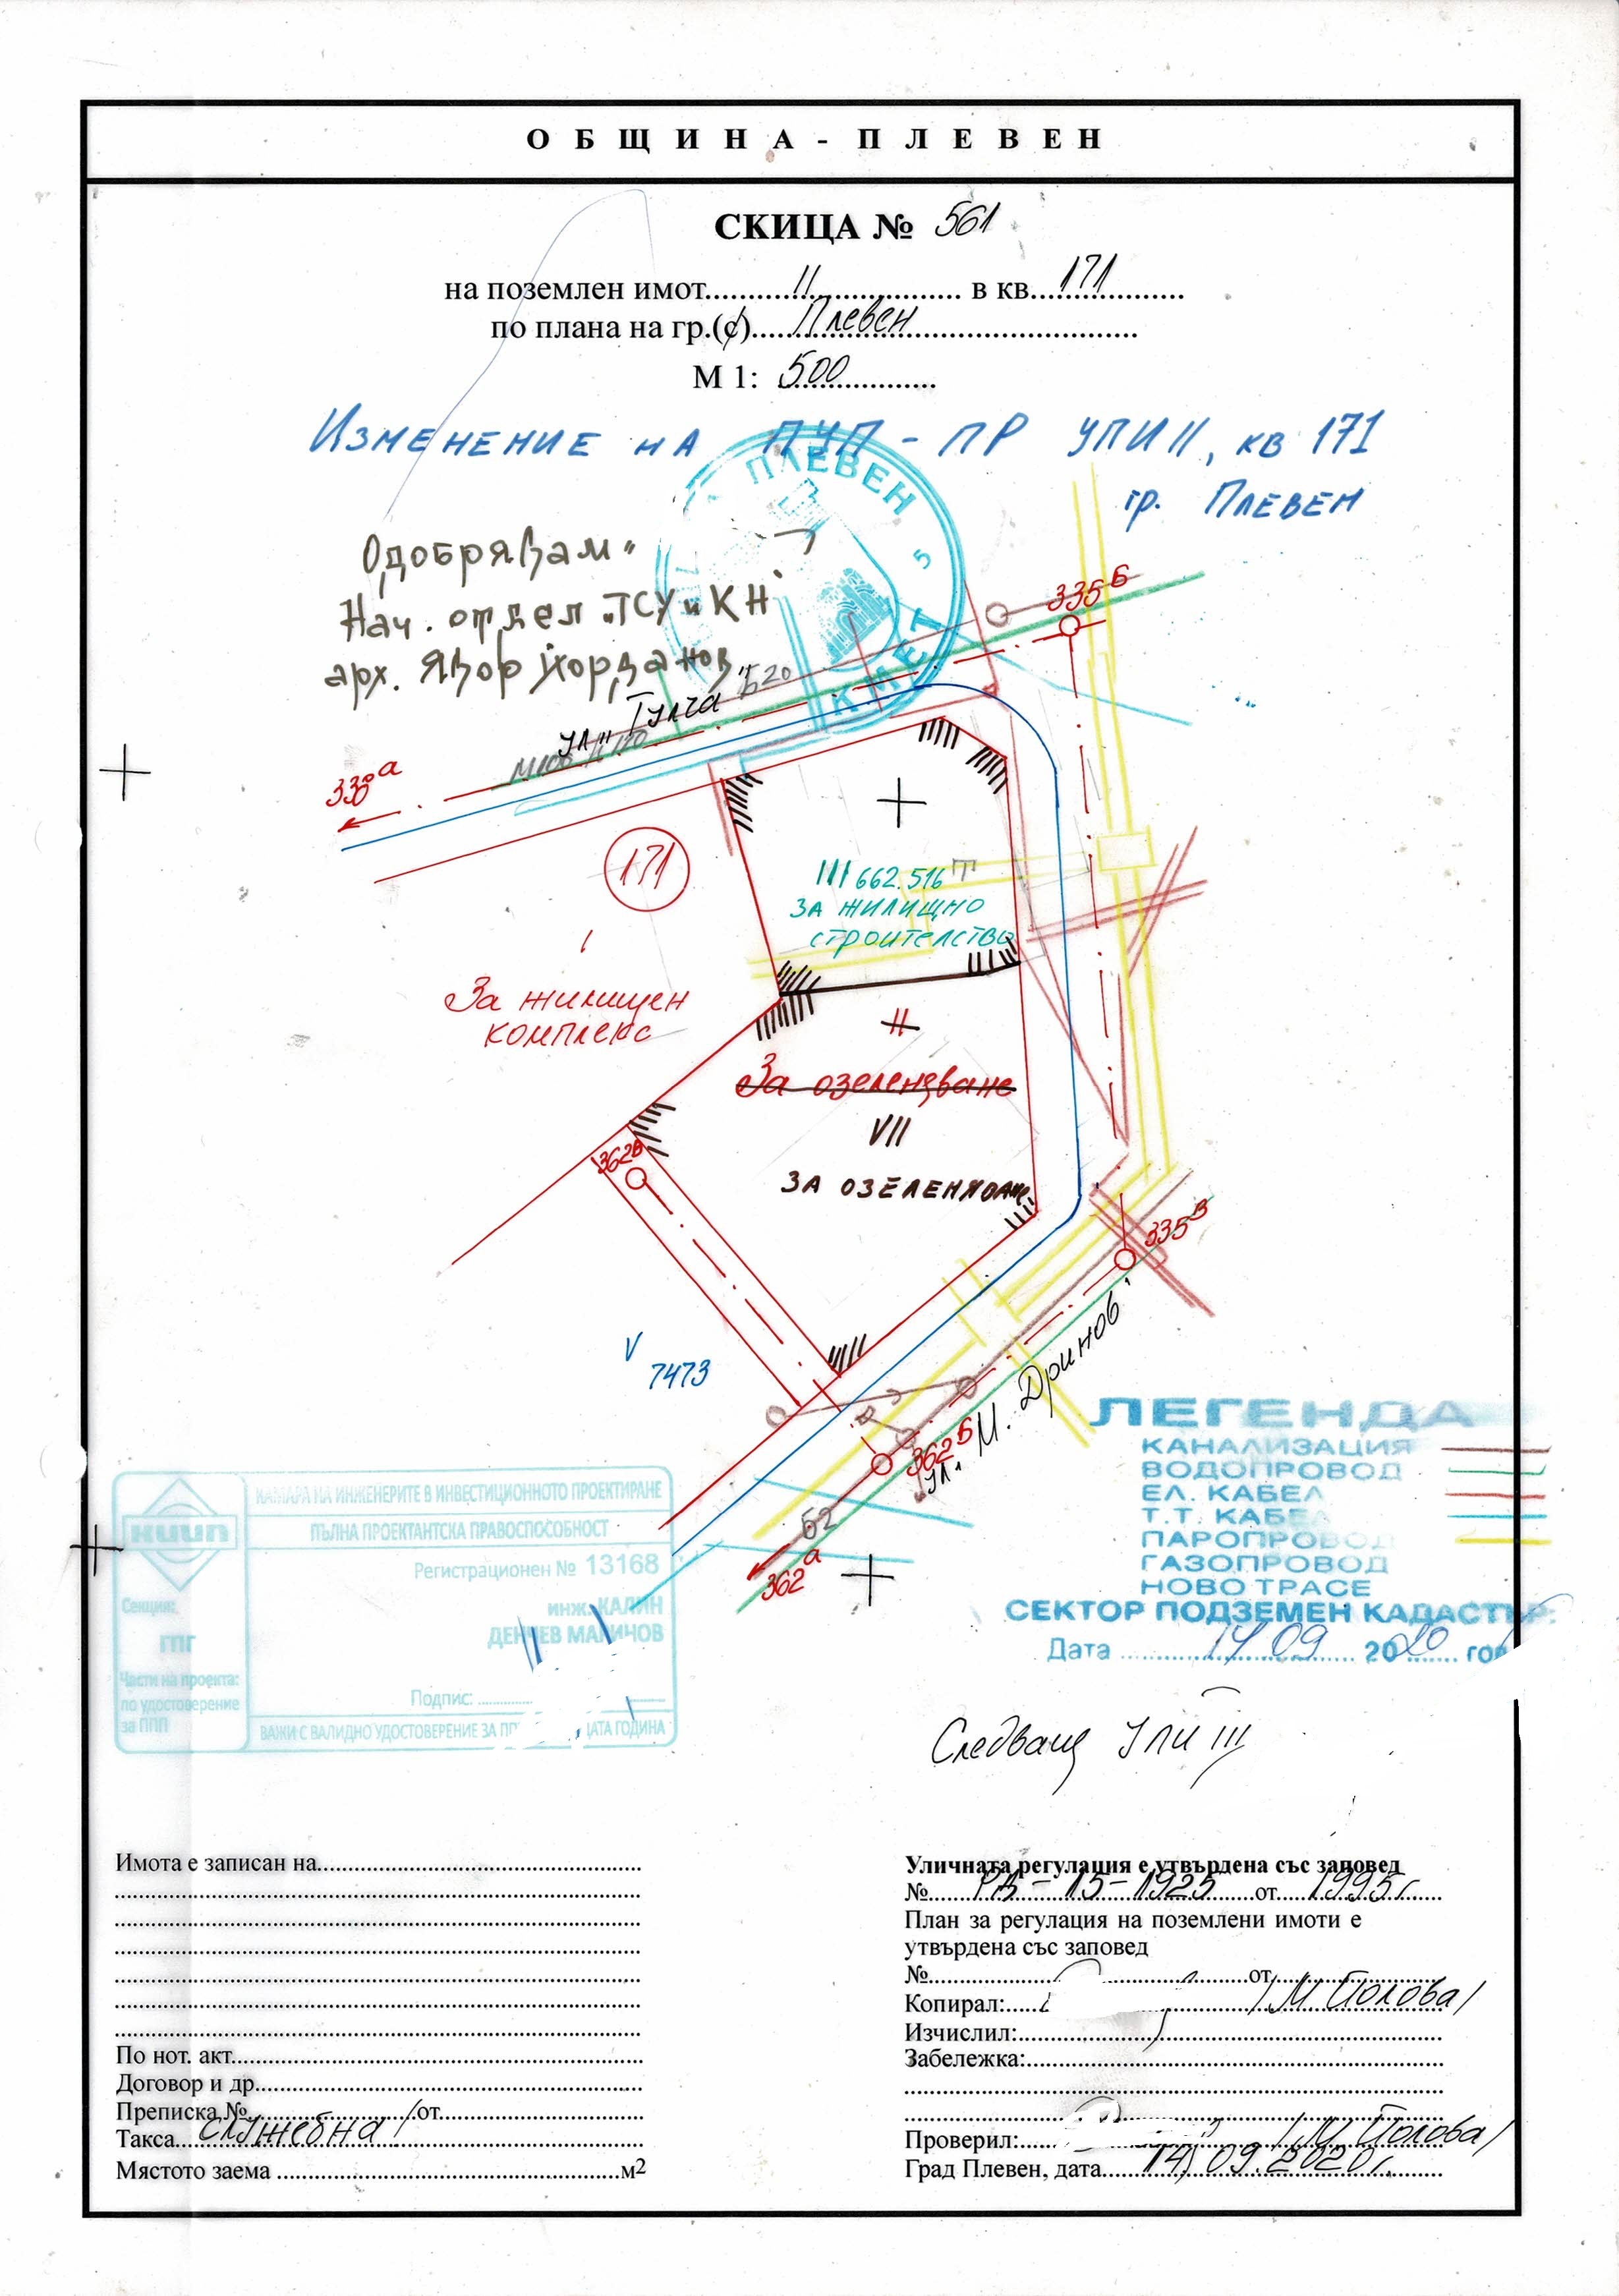 ОБЩИНА - ПЛЕВЕН
СКИЦА № 561
на поземлен имот.......... II .......... в кв. 171
по плана на гр.(с) Плевен
М 1: 500
ИЗМЕНЕНИЕ НА ПУП - ПР УПИ II, КВ 171
гр. ПЛЕВЕН
ПЛЕВЕН 5
КМЕТ
Одобрявам"
Нач. отдел "ТСУ и КН"
арх. Явор Йорданов
335Б
ул. "Тулча"
Б20
338а
171
III 662.516
ЗА ЖИЛИЩНО
СТРОИТЕЛСТВО
I
За жилищен
комплекс
II
За озеленяване
VII
ЗА ОЗЕЛЕНЯВАНЕ
362В
335В
V
7473
ул. М. Дринов"
362Б
Б2
362а
ЛЕГЕНДА
КАНАЛИЗАЦИЯ
ВОДОПРОВОД
ЕЛ. КАБЕЛ
Т.Т. КАБЕЛ
ПАРОПРОВОД
ГАЗОПРОВОД
НОВО ТРАСЕ
СЕКТОР ПОДЗЕМЕН КАДАСТЪР:
Дата 14.09 2020 год
КАМАРА НА ИНЖЕНЕРИТЕ В ИНВЕСТИЦИОННОТО ПРОЕКТИРАНЕ
КИИП
ПЪЛНА ПРОЕКТАНТСКА ПРАВОСПОСОБНОСТ
Регистрационен № 13168
Секция:
ГПГ
инж. КАЛИН
ДЕНЧЕВ МАРИЧОВ
Части на проекта:
по удостоверение
за ППП
Подпис:
ВАЖИ С ВАЛИДНО УДОСТОВЕРЕНИЕ ЗА ПП АТА ГОДИНА
Следващ УПИ III
Имота е записан на
По нот. акт
Договор и др.
Преписка № от
Такса служебна
Мястото заема м2
Уличната регулация е утвърдена със заповед
№ РД-15-1925 от 1995г
План за регулация на поземлени имоти е
утвърдена със заповед
№ от
Копирал: /М Попова/
Изчислил:
Забележка:
Проверил: /М Попова/
Град Плевен, дата 14.09.2020г.